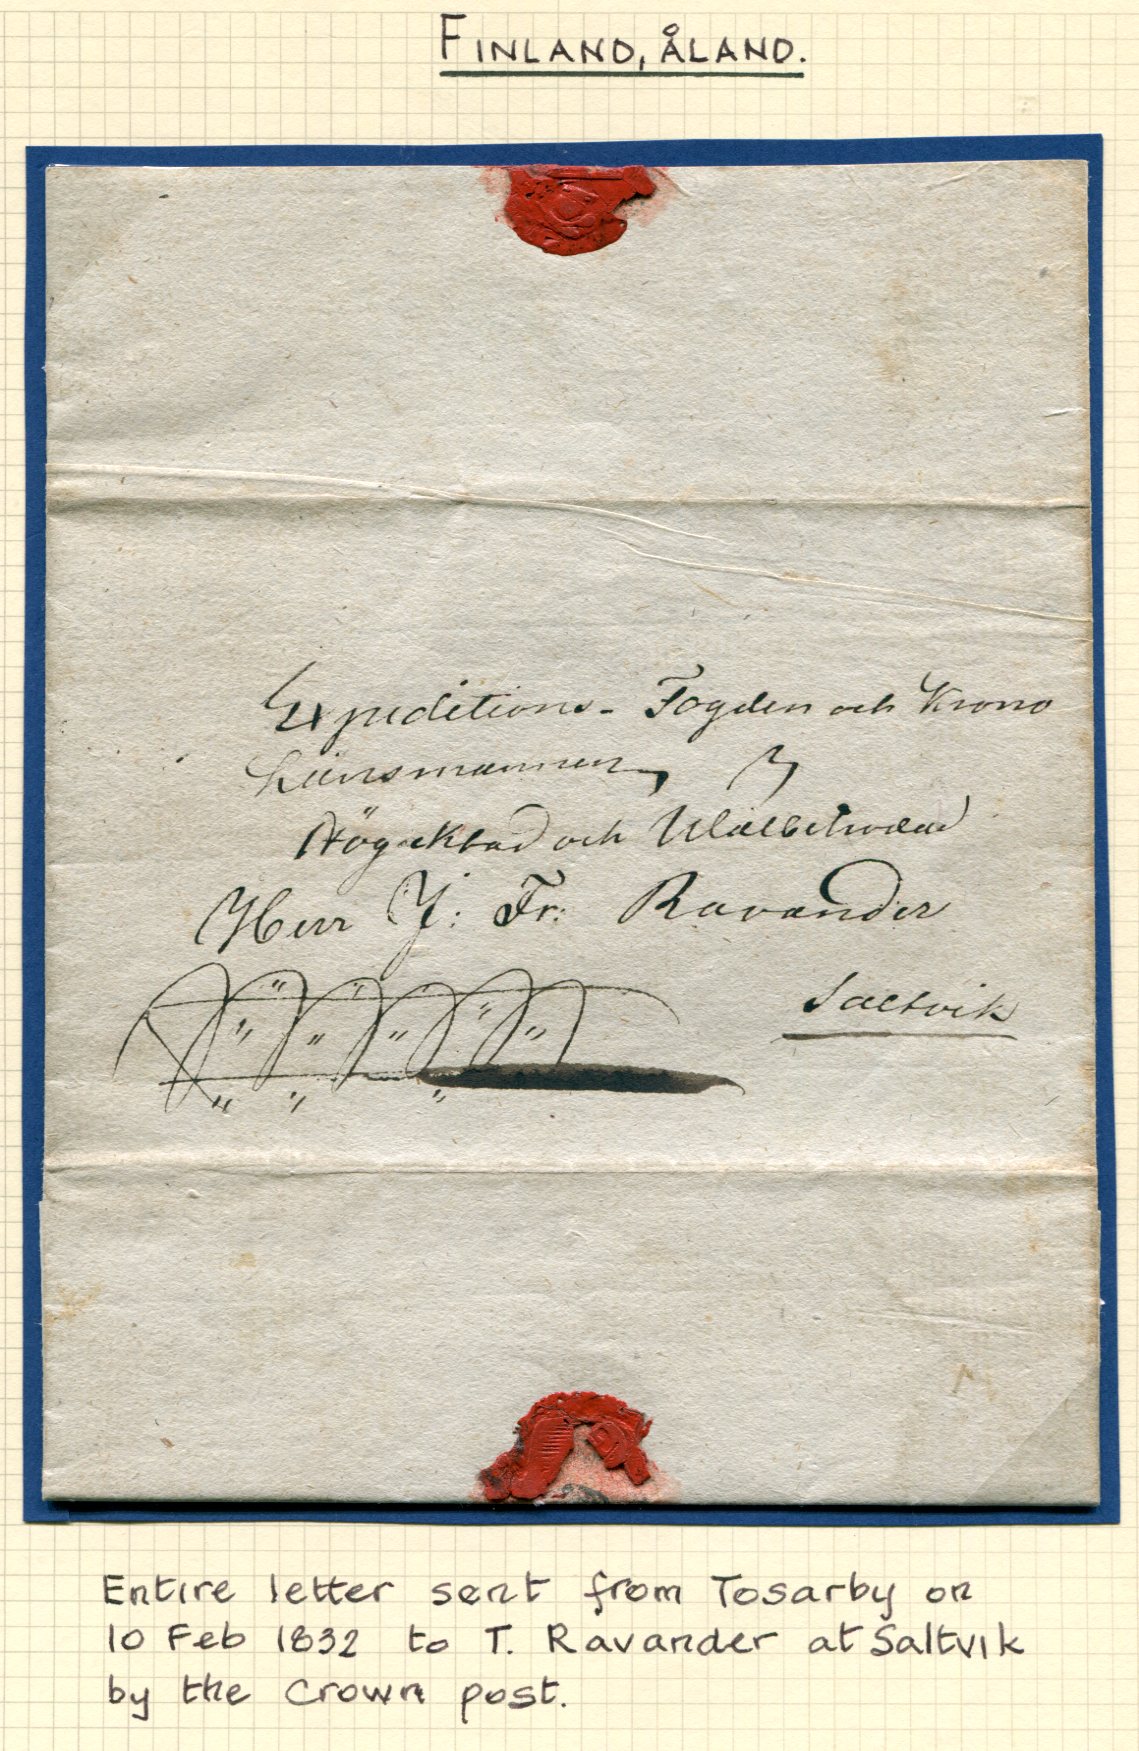 FINLAND, ÅLAND.
Expeditions- Fogden och Krono
Länsmannen,
Högacktad och Wälbetrodde
Herr J: Fr: Ravander
Saltvik
Entire letter sent from Tosarby on
10 Feb 1832 to T. Ravander at Saltvik
by the Crown post.